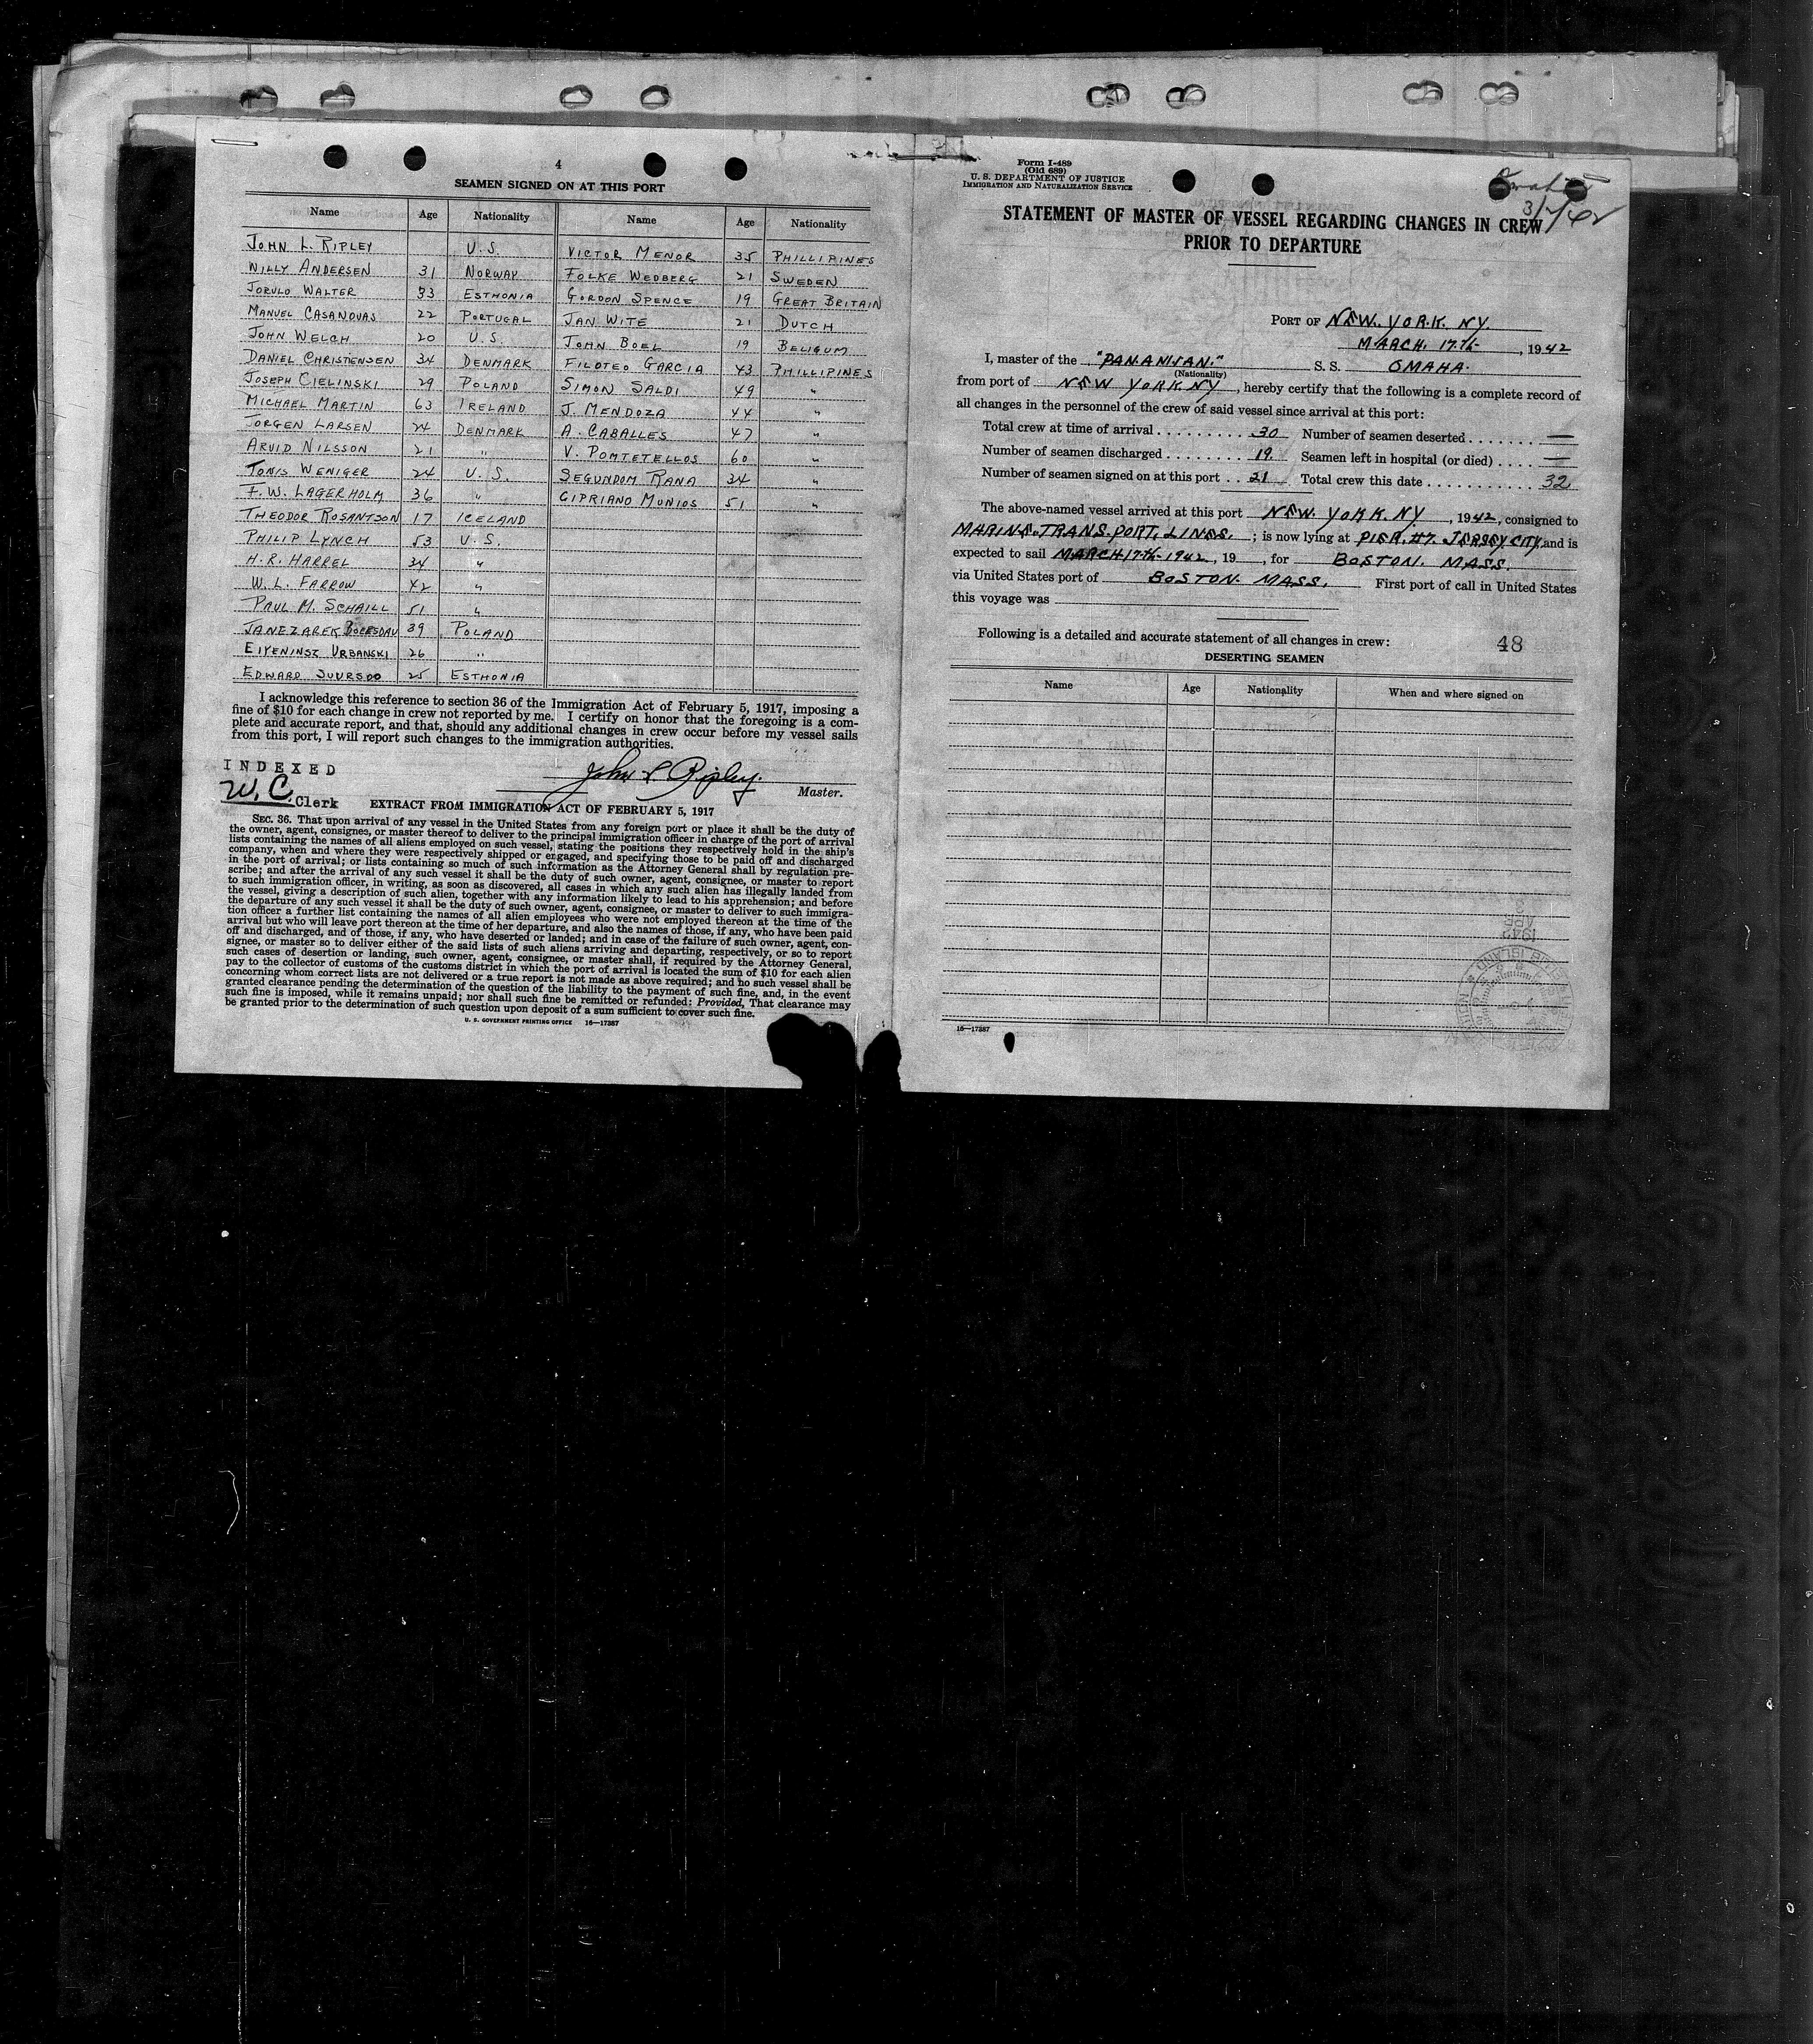 4
SEAMEN SIGNED ON AT THIS PORT
Name Age Nationality Name Age Nationality
JOHN L. RIPLEY U.S. VICTOR MENOR 35 PHILLIPINES
WILLY ANDERSEN 31 NORWAY FOLKE WEDBERG 21 SWEDEN
JORULO WALTER 33 ESTHONIA GORDON SPENCE 19 GREAT BRITAIN
MANUEL CASANOVAS 22 PORTUGAL JAN WITE 21 DUTCH
JOHN WELCH 20 U.S. JOHN BOEL 19 BELIGUM
DANIEL CHRISTENSEN 34 DENMARK FILOTEO GARCIA 43 PHILLIPINES
JOSEPH CIELINSKI 29 POLAND SIMON SALDI 49 "
MICHAEL MARTIN 63 IRELAND J. MENDOZA 44 "
JORGEN LARSEN 24 DENMARK A. CABALLES 47 "
ARVID NILSSON 21 " V. POMTETELLOS 60 "
TONIS WENIGER 24 U.S. SEGUNDOM RANA 34 "
F.W. LAGERHOLM 36 " CIPRIANO MUNIOS 51 "
THEODOR ROSANTSON 17 ICELAND
PHILIP LYNCH 53 U.S.
H.R. HARREL 34 "
W.L. FARROW 42 "
PAUL M. SCHAILL 51 "
JANEZAREK BOLESDAU 39 POLAND
EIYENINSZ URBANSKI 26 "
EDWARD JUURSOO 25 ESTHONIA
I acknowledge this reference to section 36 of the Immigration Act of February 5, 1917, imposing a
fine of $10 for each change in crew not reported by me. I certify on honor that the foregoing is a com-
plete and accurate report, and that, should any additional changes in crew occur before my vessel sails
from this port, I will report such changes to the immigration authorities.
INDEXED
John L Ripley.
Master.
W.C. Clerk
EXTRACT FROM IMMIGRATION ACT OF FEBRUARY 5, 1917
SEC. 36. That upon arrival of any vessel in the United States from any foreign port or place it shall be the duty of
the owner, agent, consignes, or master thereof to deliver to the principal immigration officer in charge of the port of arrival
lists containing the names of all aliens employed on such vessel, stating the positions they respectively hold in the ship's
company, when and where they were respectively shipped or engaged, and specifying those to be paid off and discharged
in the port of arrival; or lists containing so much of such information as the Attorney General shall by regulation pre-
scribe; and after the arrival of any such vessel it shall be the duty of such owner, agent, consignee, or master to report
to such immigration officer, in writing, as soon as discovered, all cases in which any such alien has illegally landed from
the vessel, giving a description of such alien, together with any information likely to lead to his apprehension; and before
the departure of any such vessel it shall be the duty of such owner, agent, consignee, or master to deliver to such immigra-
tion officer a further list containing the names of all alien employees who were not employed thereon at the time of the
arrival but who will leave port thereon at the time of her departure, and also the names of those, if any, who have been paid
off and discharged, and of those, if any, who have deserted or landed; and in case of the failure of such owner, agent, con-
signee, or master so to deliver either of the said lists of such aliens arriving and departing, respectively, or so to report
such cases of desertion or landing, such owner, agent, consignee, or master shall, if required by the Attorney General,
pay to the collector of customs of the customs district in which the port of arrival is located the sum of $10 for each alien
concerning whom correct lists are not delivered or a true report is not made as above required; and no such vessel shall be
granted clearance pending the determination of the question of the liability to the payment of such fine, and, in the event
such fine is imposed, while it remains unpaid; nor shall such fine be remitted or refunded: Provided, That clearance may
be granted prior to the determination of such question upon deposit of a sum sufficient to cover such fine.
U. S. GOVERNMENT PRINTING OFFICE 16—17387
Form I-489
(Old 689)
U. S. DEPARTMENT OF JUSTICE
IMMIGRATION AND NATURALIZATION SERVICE
STATEMENT OF MASTER OF VESSEL REGARDING CHANGES IN CREW
PRIOR TO DEPARTURE
PORT OF NEW. YORK. NY.
MARCH. 17th, 1942
I, master of the "PANAMIAN." S. S. OMAHA.
(Nationality)
from port of NEW YORK NY, hereby certify that the following is a complete record of
all changes in the personnel of the crew of said vessel since arrival at this port:
Total crew at time of arrival 30 Number of seamen deserted —
Number of seamen discharged 19. Seamen left in hospital (or died) —
Number of seamen signed on at this port 21 Total crew this date 32
The above-named vessel arrived at this port NEW. YORK. NY., 1942, consigned to
MARINE. TRANS. PORT. LINES.; is now lying at PIER. #7. JERSEY CITY and is
expected to sail MARCH 17th-1942, 19 , for BOSTON. MASS.
via United States port of BOSTON. MASS. First port of call in United States
this voyage was
Following is a detailed and accurate statement of all changes in crew: 48
DESERTING SEAMEN
Name Age Nationality When and where signed on
16—17387